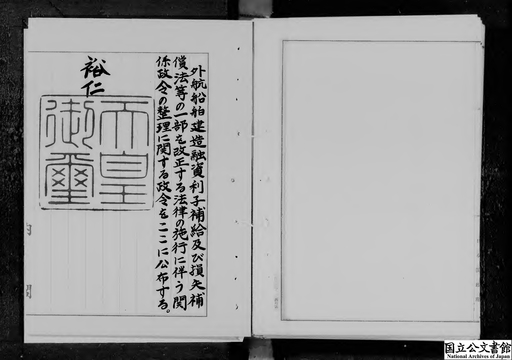 外航船舶建造融資利子補給及び損失補
償法等の一部を改正する法律の施行に伴う関
係政令の整理に関する政令をここに公布する。
裕仁
天皇
御璽
国立公文書館
National Archives of Japan